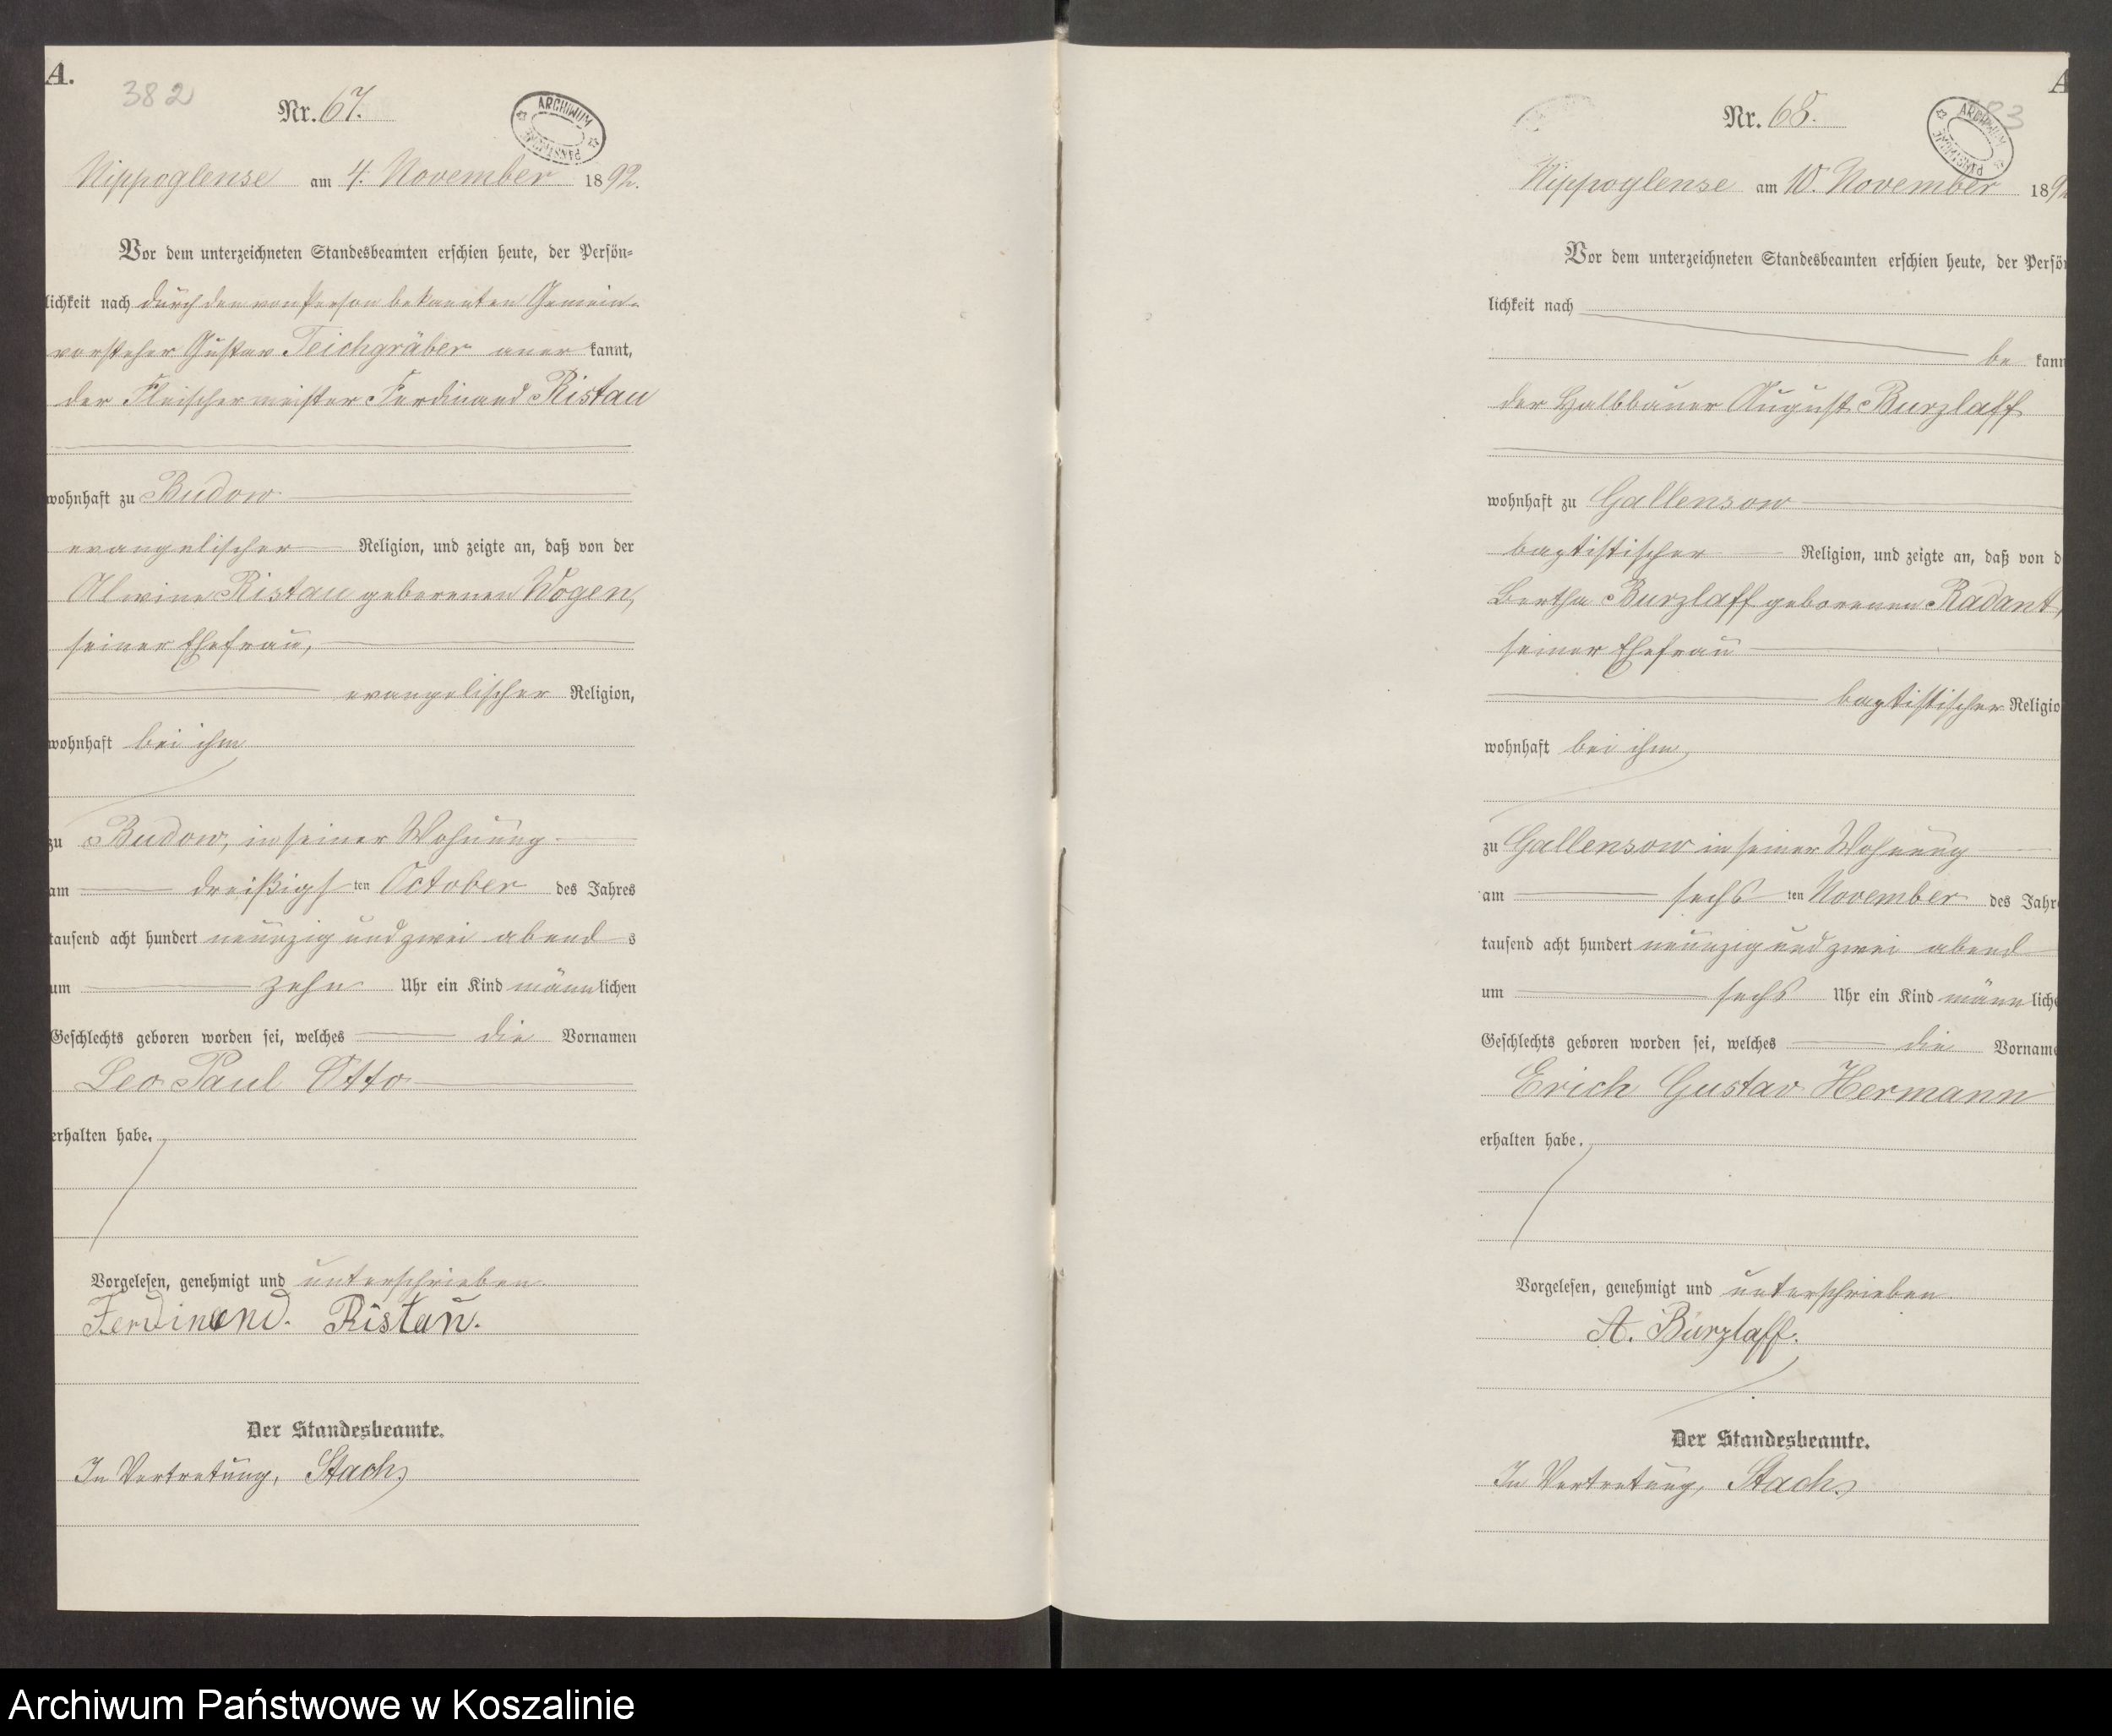 A.
382
Nr. 67.
ARCHIWUM PAŃSTWOWE
Nippoglense am 4. November 1892.
Vor dem unterzeichneten Standesbeamten erschien heute, der Persön-
lichkeit nach durch den von Person bekannten Gemein-
vorsteher Gustav Teichgräber aner kannt,
der Fleischermeister Ferdinand Ristau
wohnhaft zu Budow
evangelischer Religion, und zeigte an, daß von der
Alwine Ristau geborenen Wogen,
seiner Ehefrau,
evangelischer Religion,
wohnhaft bei ihm
zu Budow, in seiner Wohnung
am dreißigs ten October des Jahres
tausend acht hundert neunzig und zwei abend s
um zehn Uhr ein Kind männ lichen
Geschlechts geboren worden sei, welches die Vornamen
Leo Paul Otto
erhalten habe.
Vorgelesen, genehmigt und unterschrieben.
Ferdinand. Ristau.
Der Standesbeamte.
In Vertretung, Stach
A
Nr. 68.
ARCHIWUM PAŃSTWOWE
Nippoglense am 10. November 189
Vor dem unterzeichneten Standesbeamten erschien heute, der Persö
lichkeit nach
be kann
der Halbbauer August Burzlaff
wohnhaft zu Gallensow
baptistischer Religion, und zeigte an, daß von d
Bertha Burzlaff geborenen Radant,
seiner Ehefrau
baptistischer Religio
wohnhaft bei ihm
zu Gallensow in seiner Wohnung
am sechs ten November des Jahr
tausend acht hundert neunzig und zwei abend
um sechs Uhr ein Kind männ liche
Geschlechts geboren worden sei, welches die Vorname
Erich Gustav Hermann
erhalten habe.
Vorgelesen, genehmigt und unterschrieben.
A. Burzlaff.
Der Standesbeamte.
In Vertretung, Stach
Archiwum Państwowe w Koszalinie